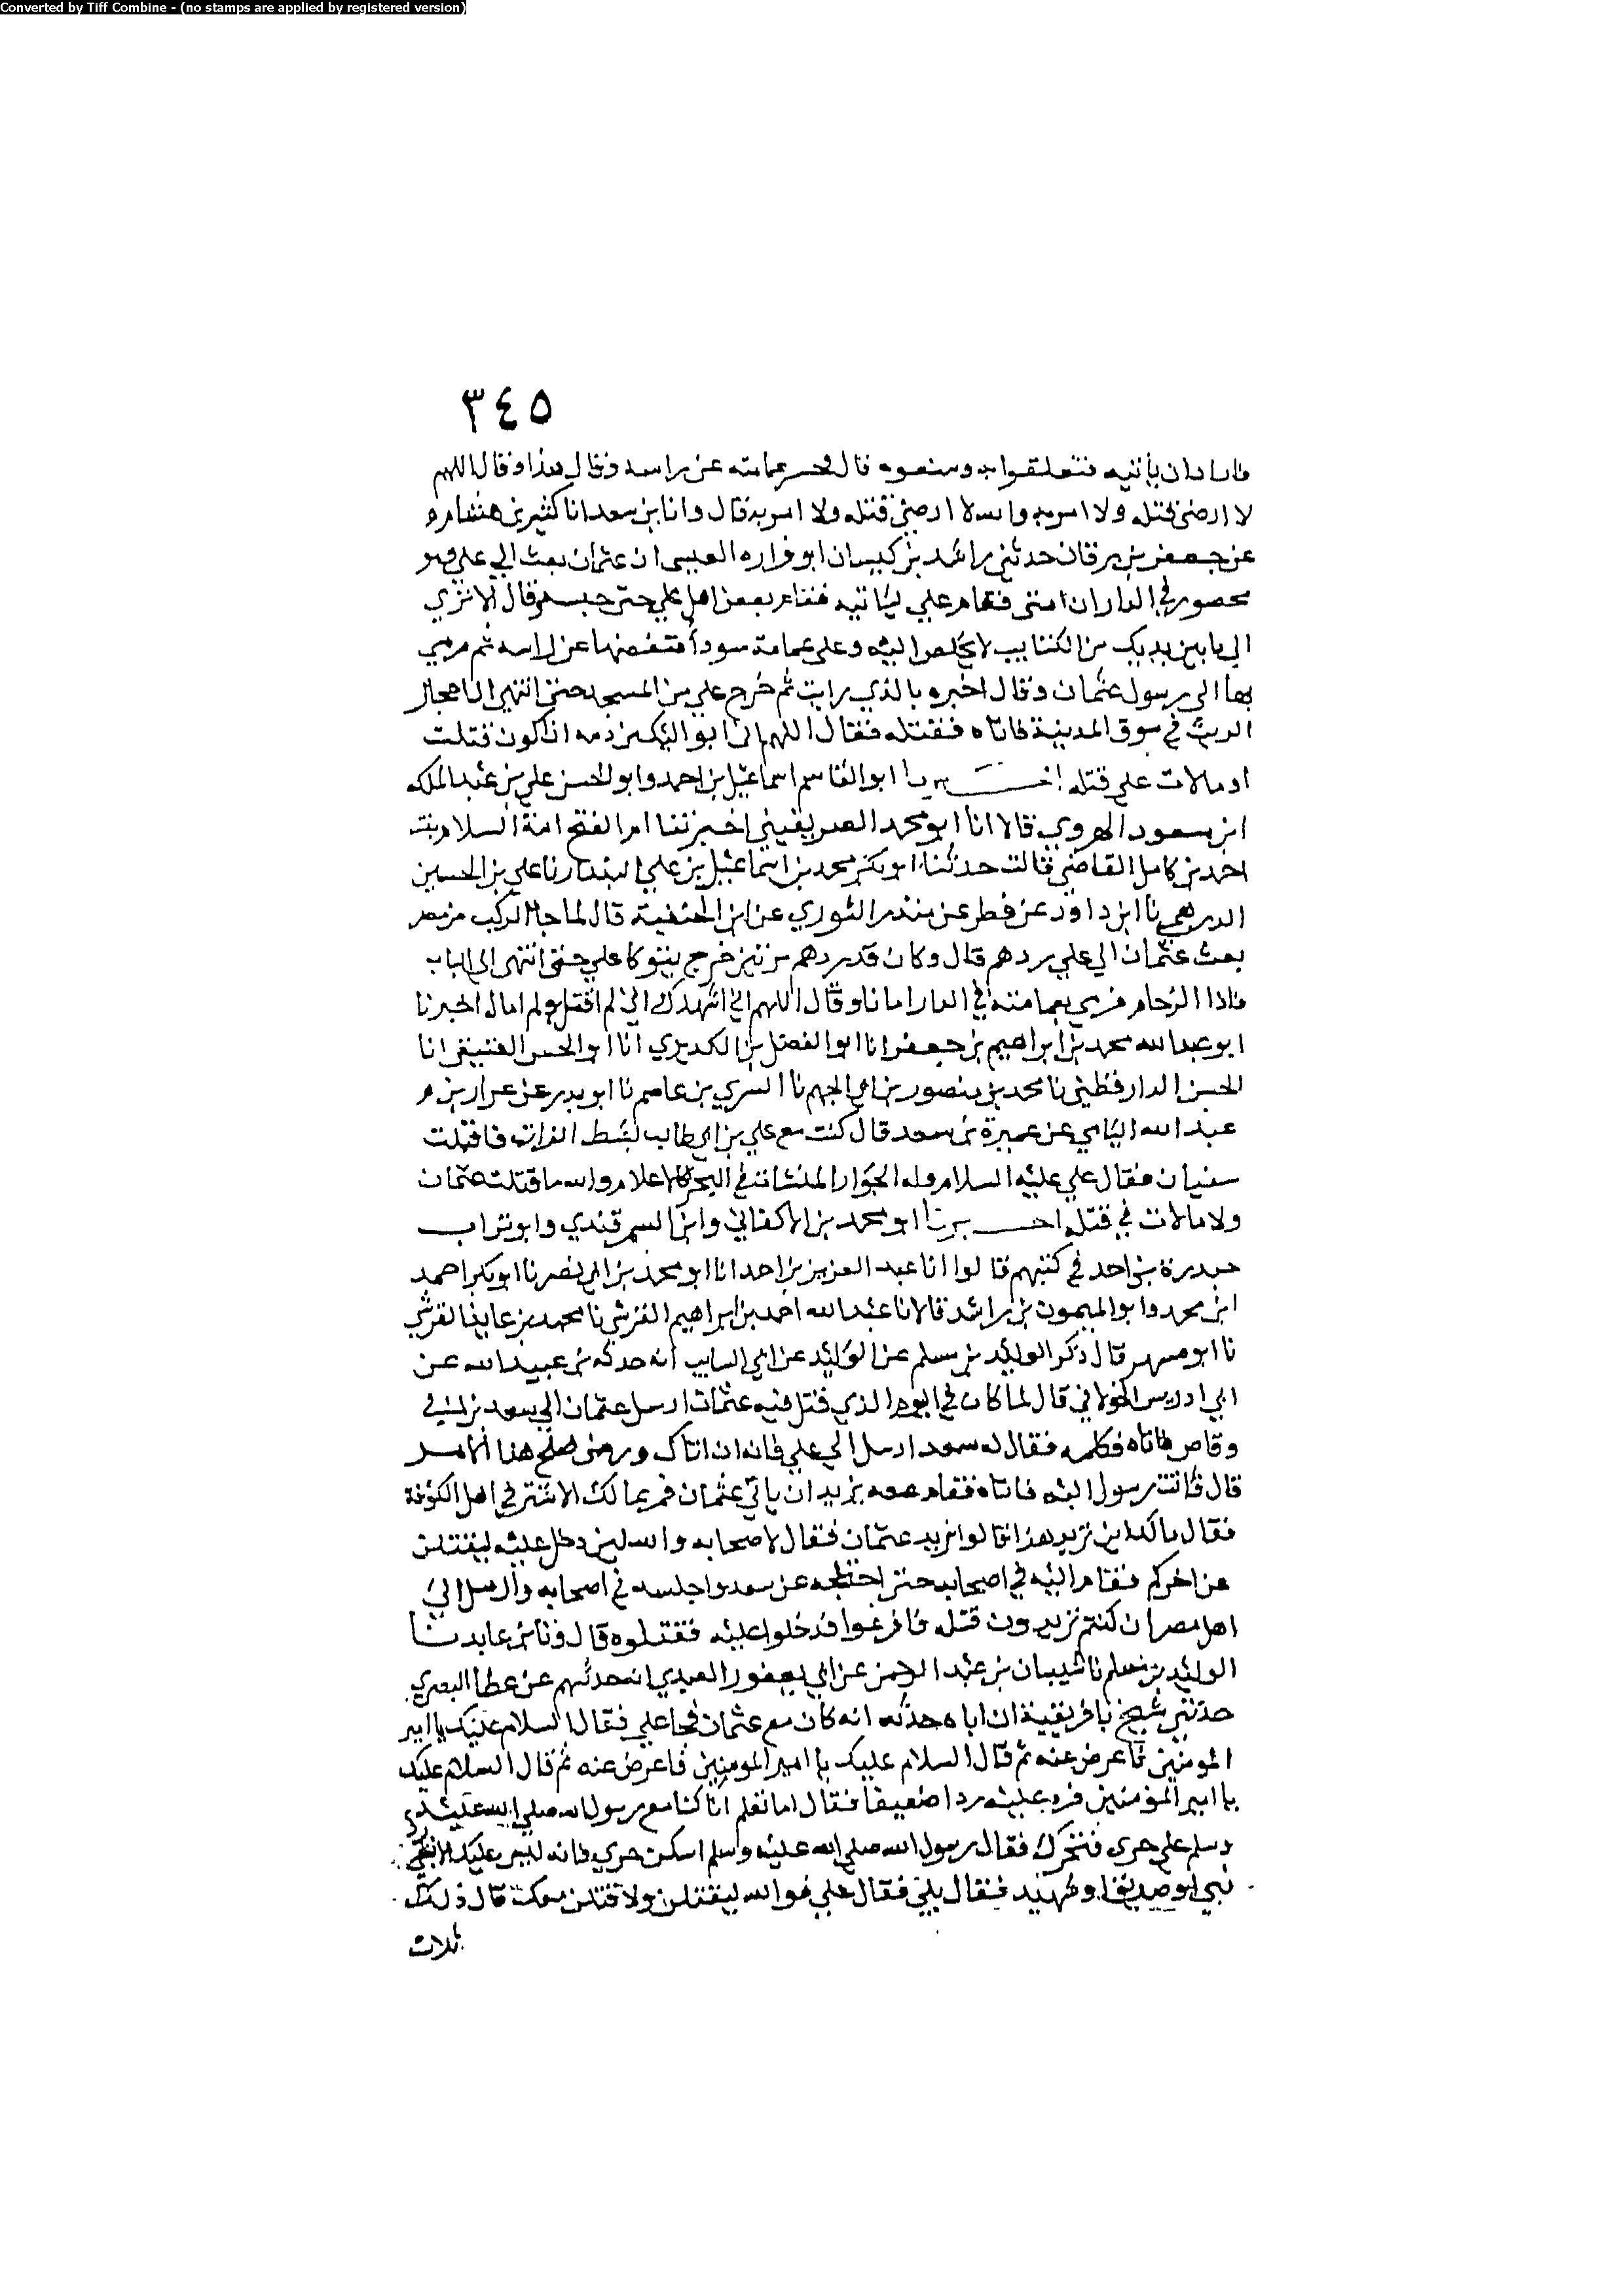 Converted by Tiff Combine - (no stamps are applied by registered version)
٣٤٥
فاراد ان يأتيه فتعلقوا به ومنعوه قال فحسر عمامته عن راسه وقال هذا وقال اللهم
لا ارضى قتله ولا امر به والله لا ارضى قتله ولا امر به قال وانا بن سعد انا كثير بن هشام
عن جعفر بن برقان حدثني راشد بن كيسان ابو فزاره العبسي ان عثمان بعث الي علي وهو
محصور في الدار ان ائتنى فقام علي ليأتيه فقام بعض اهل علي حتى حبسه وقال الا ترى
الي ما بين يديك من الكتايب لا تخلص اليه وعلى علي عمامة سودا فنقضها عن راسه ثم رمي
بها الى رسول عثمان وقال اخبره بالذي رايت ثم خرج علي من المسجد حتى انتهي الي احجار
الزيت في سوق المدينة فاتاه قتله فقال اللهم اني ابرأ اليك من دمه ان اكون قتلت
او مالات على قتله اخبرنا ابو القاسم اسماعيل بن احمد وابو الحسن علي بن عبد الملك
ابن مسعود الهروي قالا انا ابو محمد الصريفيني اخبرتنا ام الفتح امة السلام بنت
احمد بن كامل القاضي قالت حدثنا ابو بكر محمد بن اسماعيل بن علي البندار نا علي بن الحسين
الدرهمي نا ابن داود عن فطر عن منذر الثوري عن ابن الحنفية قال لما جا الركب من مصر
بعث عثمان الي علي يردهم قال وكان قد ردهم مرتين فخرج يتوكا علي حتى انتهى الى الباب
فاذا الزحام فرمي بعمامته في الدار امانا وقال اللهم اني اشهدك اني لم اقتل ولم امال اخبرنا
ابو عبد الله محمد بن ابراهيم بن جعفر انا ابو الفضل بن الكريدي انا ابو الحسن العتيقي انا
الحسن الدارقطني نا محمد بن منصور بن ابي الجهم نا السري بن عاصم نا ابو بدر عن عرار بن
عبد الله اليامي عن عميرة بن سعد قال كنت مع علي بن ابي طالب بشط الفرات فاقبلت
سفينان فقال علي عليه السلام وله الجوار المنشات في البحر كالاعلام والله ما قتلت عثمان
ولا مالات في قتله اخبرنا ابو محمد بن الاكفاني وابن السمرقندي وابو تراب
حيدرة بن احمد في كتبهم قالوا انا عبد العزيز بن احمد انا ابو محمد بن ابي نصر نا ابو بكر احمد
ابن محمد وابو الميمون بن راشد قالا نا عبد الله احمد بن ابراهيم القرشي نا محمد بن عايذ القرشي
نا ابو مسهر قال ذكر الوليد بن مسلم عن الوليد عن ابي السايب انه حدثه بن عبيد الله عن
ابي ادريس الخولاني قال لما كان في اليوم الذي قتل فيه عثمان ارسل عثمان الي سعد بن ابي
وقاص فاتاه فكلمه فقال له سعد ارسل الي علي فانه ان اتاك ورضى صلح هذا الامر
قال فانت رسولي اليه فاتاه فقام معه يريد ان يأتي عثمان فمر بمالك الاشتر في اهل الكوفة
فقال مالك اين تريد هذا قالوا يريد عثمان فقال لاصحابه والله لين دخل عليه ليقتلن
عن اخركم فقام اليه في اصحابه حتى اختلجه عن سعد واجلسه في اصحابه وارسل الي
اهل مصر ان كنتم تريدون قتله فافرغوا فدخلوا عليه فقتلوه قال ونا بن عايد نا
الوليد بن مسلم نا شيبان بن عبد الرحمن عن ابي يعفور العبدي انه حدثهم عن عطا البصري
حدثني شيخ بافريقية ان اباه حدثه انه كان مع عثمان فجا علي فقال السلام عليك يا امير
المومنين فاعرض عنه ثم قال السلام عليك يا امير المومنين فاعرض عنه ثم قال السلام عليك
يا امير المؤمنين فرد عليه ردا ضعيفا فقال اما تعلم انا كنا مع رسول الله صلي الله عليه
وسلم على حرى فتحرك فقال رسول الله صلى الله عليه وسلم اسكن حري فانه ليس عليك الا
نبي او صديق او شهيد فقال بلي فقال علي فوالله ليقتلن ولاقتلن معك قال ذلك
ثلاث